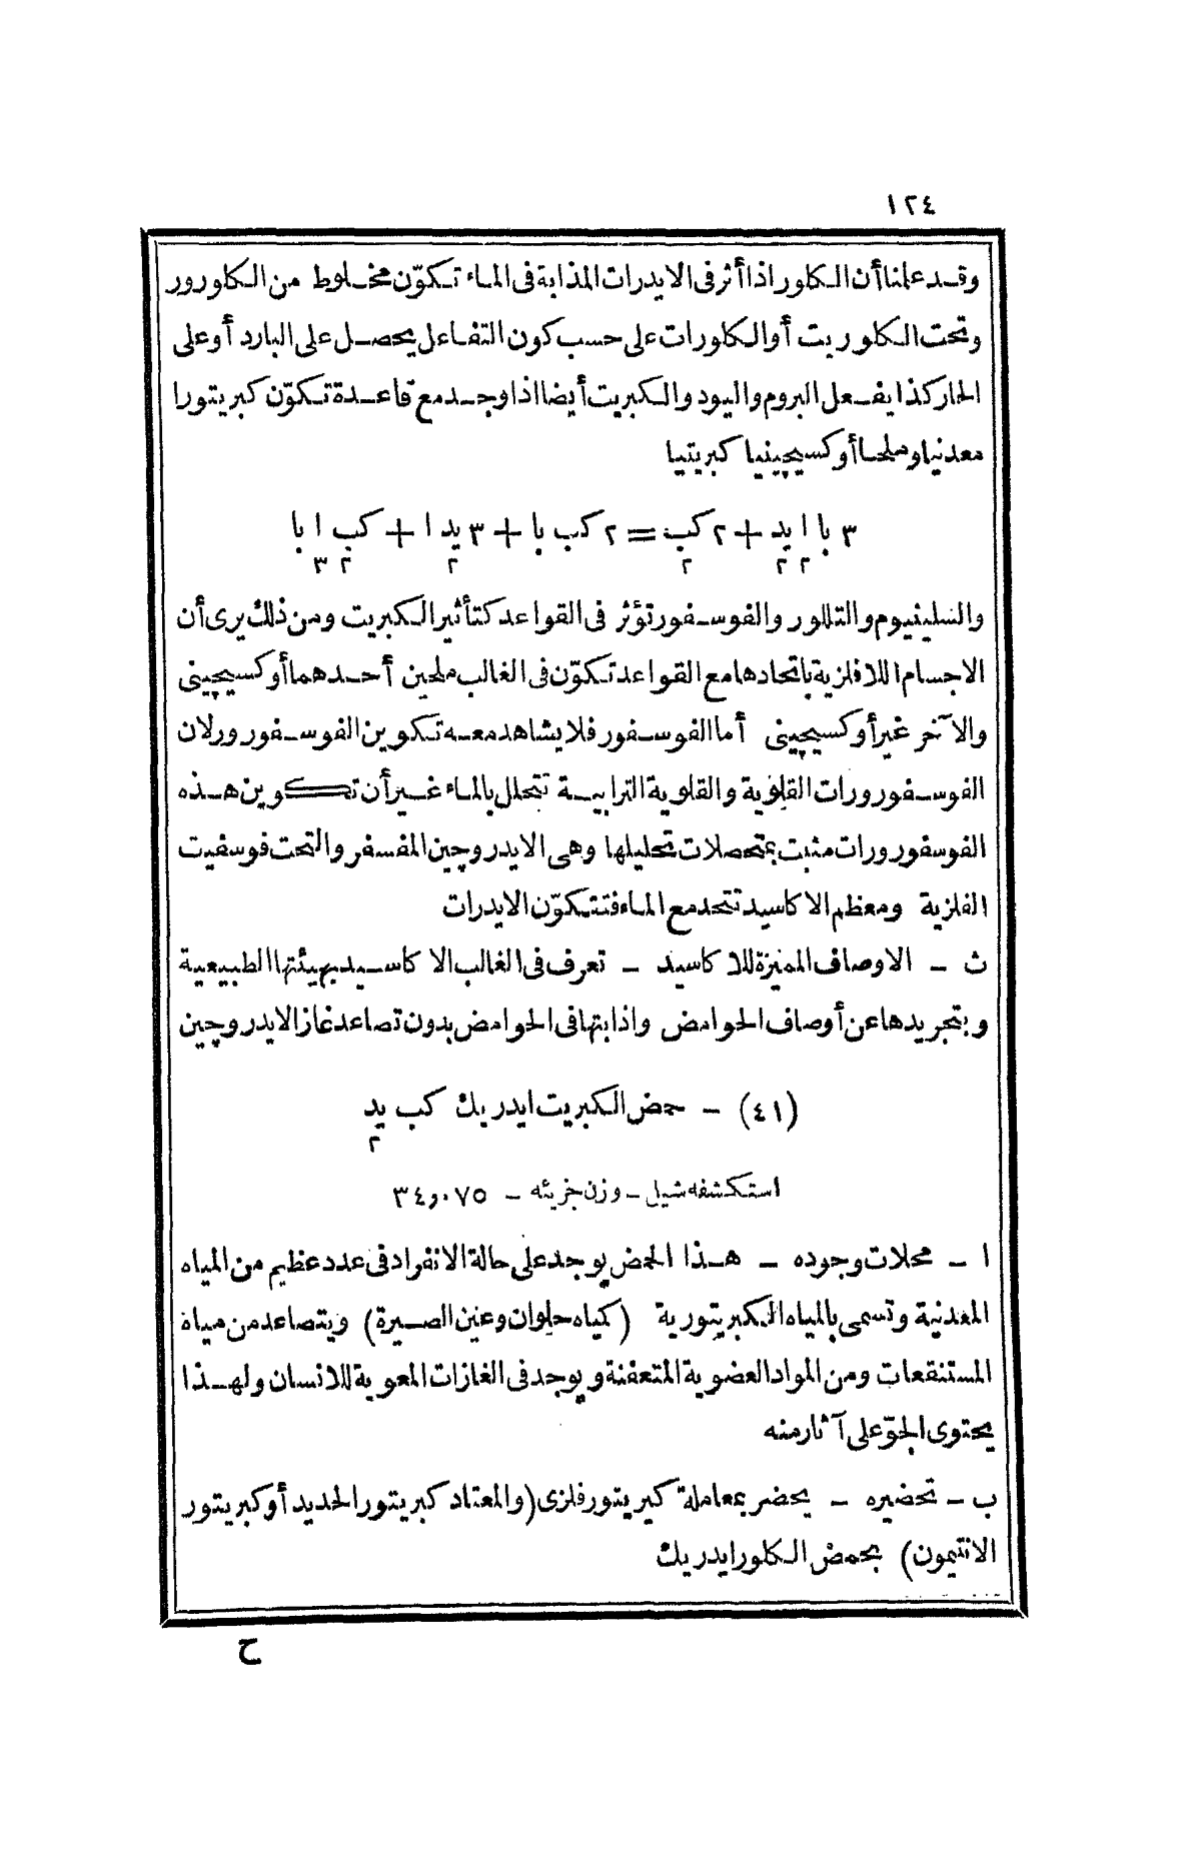 ١٢٤
وقد علمنا أن الكلور اذا أثر فى الايدرات المذابة فى الماء تكوّن مخلوط من الكلورور
وتحت الكلوريت أو الكلورات على حسب كون التفاعل يحصل على البارد أو على
الحار كذا يفعل البروم واليود والكبريت أيضا اذا وجد مع قاعدة تكوّن كبريتورا
معدنيا وملحا أوكسيچينيا كبريتيا
٣ با ا يد + ٢ كب = ٢ كب با + ٣ يد ا + كب ا با
٢ ٢ ٢ ٢ ٢ ٣
والسلينيوم والتللور والفوسفور تؤثر فى القواعد كتأثير الكبريت ومن ذلك يرى أن
الاجسام اللافلزية باتحادها مع القواعد تكوّن فى الغالب ملحين أحدهما أوكسيچينى
والآخر غير أوكسيچينى أما الفوسفور فلا يشاهد معه تكوين الفوسفورور لان
الفوسفورورات القلوية والقلوية الترابية تتحلل بالماء غير أن تكوين هذه
الفوسفورورات مثبت بمتحصلات تحليلها وهى الايدروچين المفسفر والتحت فوسفيت
الفلزية ومعظم الاكاسيد تتحد مع الماء فتتكوّن الايدرات
ث – الاوصاف المميزة للاكاسيد – تعرف فى الغالب الاكاسيد بهيئتها الطبيعية
وبتجريدها عن أوصاف الحوامض واذابتها فى الحوامض بدون تصاعد غاز الايدروچين
(٤١) – حمض الكبريت ايدريك كب يد
٢
استكشفه شيل – وزن جزيئه – ٣٤٫٠٧٥
ا – محلات وجوده – هذا الحمض يوجد على حالة الانفراد فى عدد عظيم من المياه
المعدنية وتسمى بالمياه الكبريتورية (كمياه حلوان وعين الصيرة) ويتصاعد من مياه
المستنقعات ومن المواد العضوية المتعفنة ويوجد فى الغازات المعوية للانسان ولهذا
يحتوى الجوّ على آثار منه
ب – تحضيره – يحضر بمعاملة كبريتور فلزى (والمعتاد كبريتور الحديد أو كبريتور
الانتيمون) بحمض الكلور ايدريك
ح